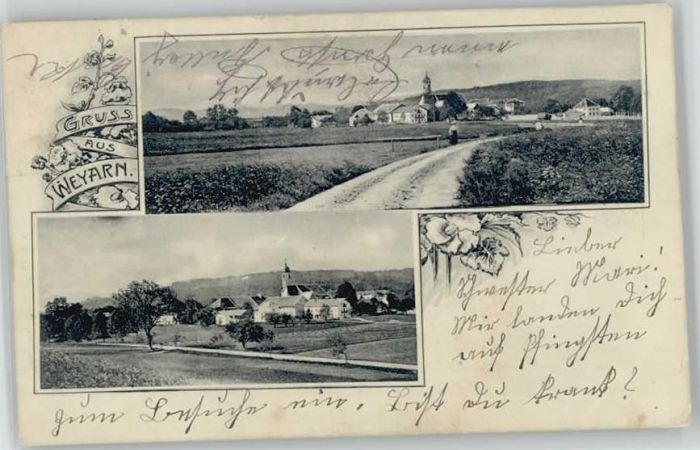 GRUSS
AUS
WEYARN.
Lieber
Schwester Mari!
Mir landen Dich
auf Pfingsten
zum Besuche ein. Bist Du krank?